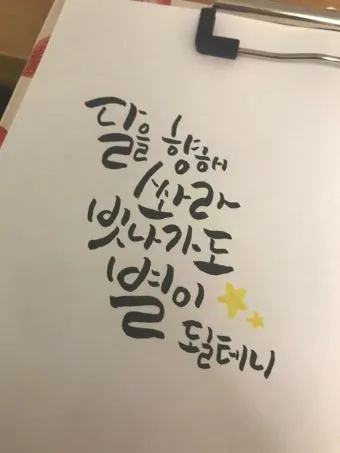 달을 향해
쏴라
빗나가도
별이
될테니